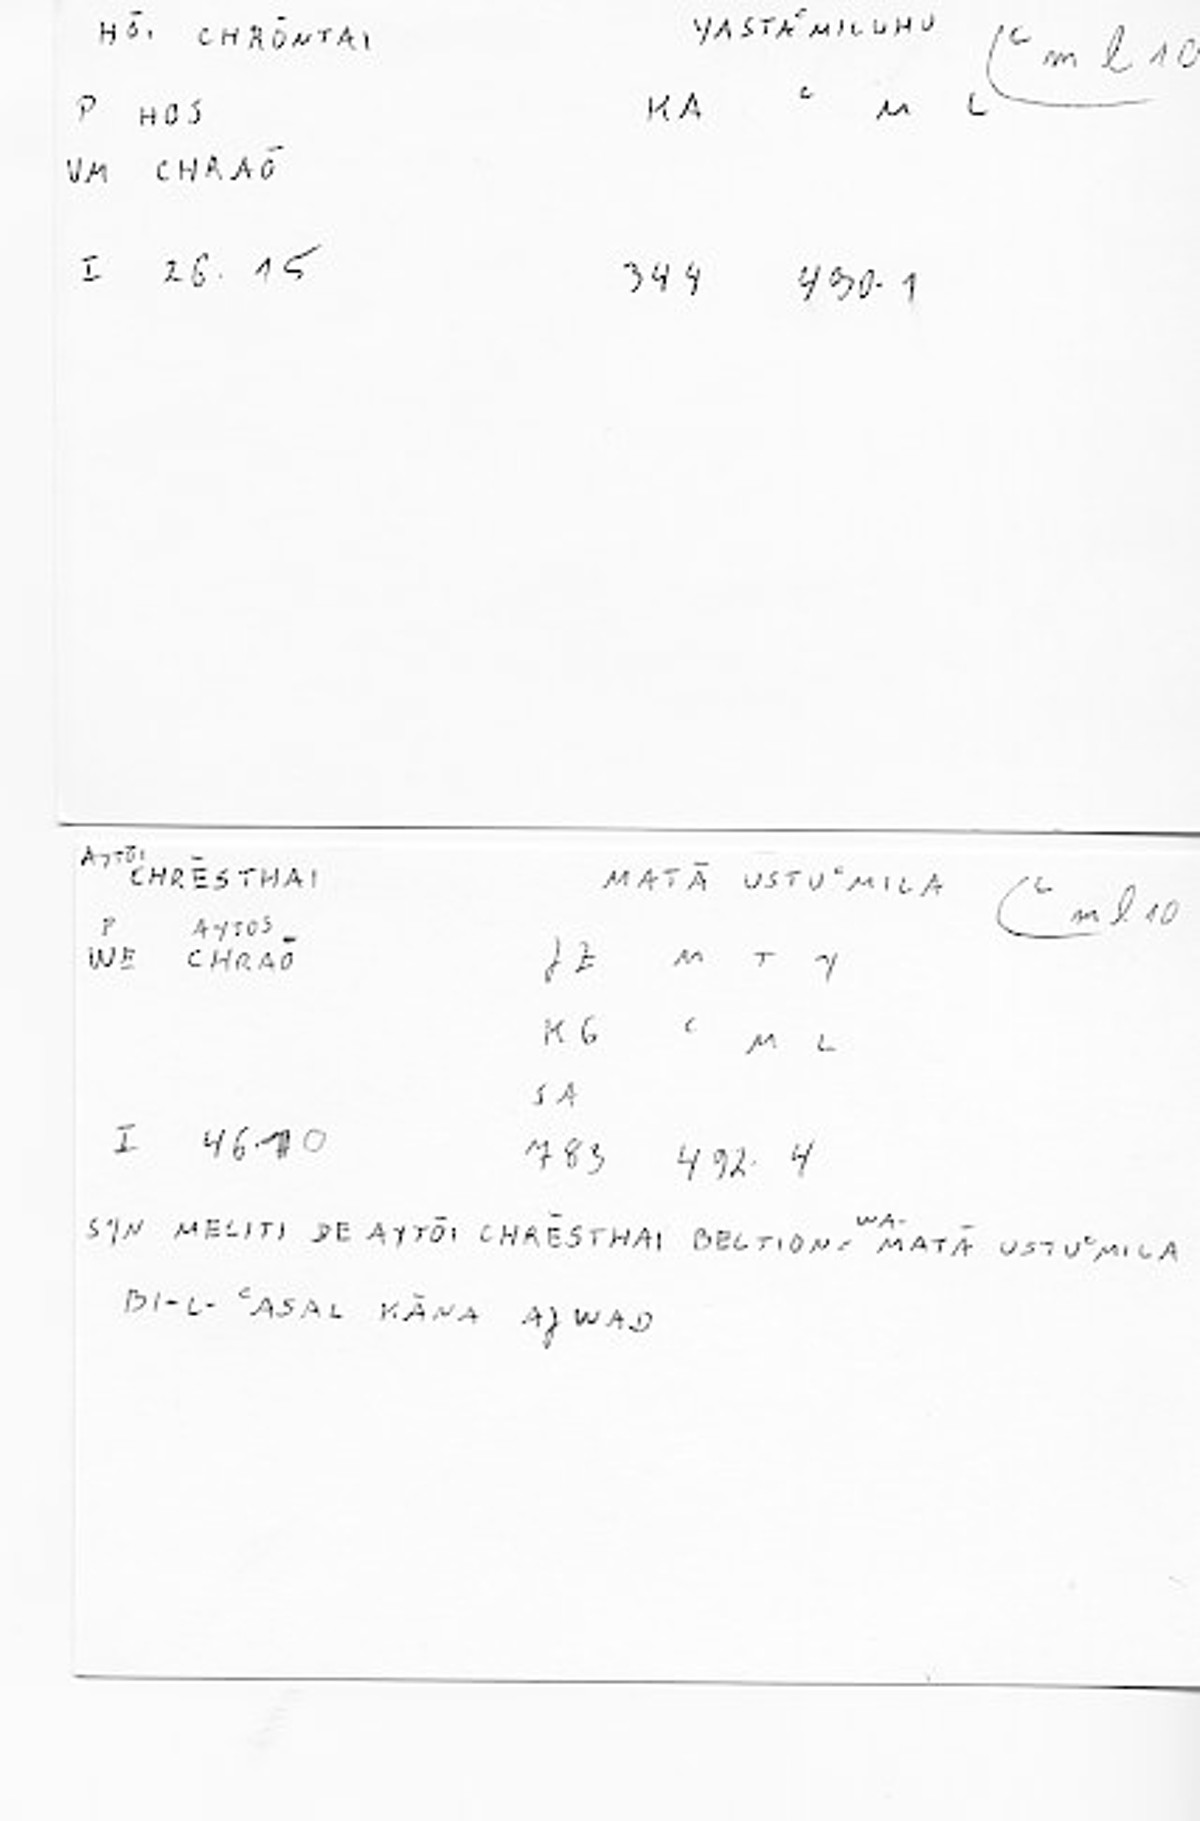 HŌI CHRŌNTAI YASTAʿMILUHU ʿml10
P HOS KA ʿ M L
VM CHRAŌ
I 26.15 344 490.1
AYTŌI
CHRĒSTHAI MATĀ USTUʿMILA ʿml10
P AYTOS
WE CHRAŌ JZ M T Y
KG ʿ M L
SA
I 46.10 783 492.4
SYN MELITI DE AYTŌI CHRĒSTHAI BELTION. WA-MATĀ USTUʿMILA
BI-L-ʿASAL KĀNA AJWAD